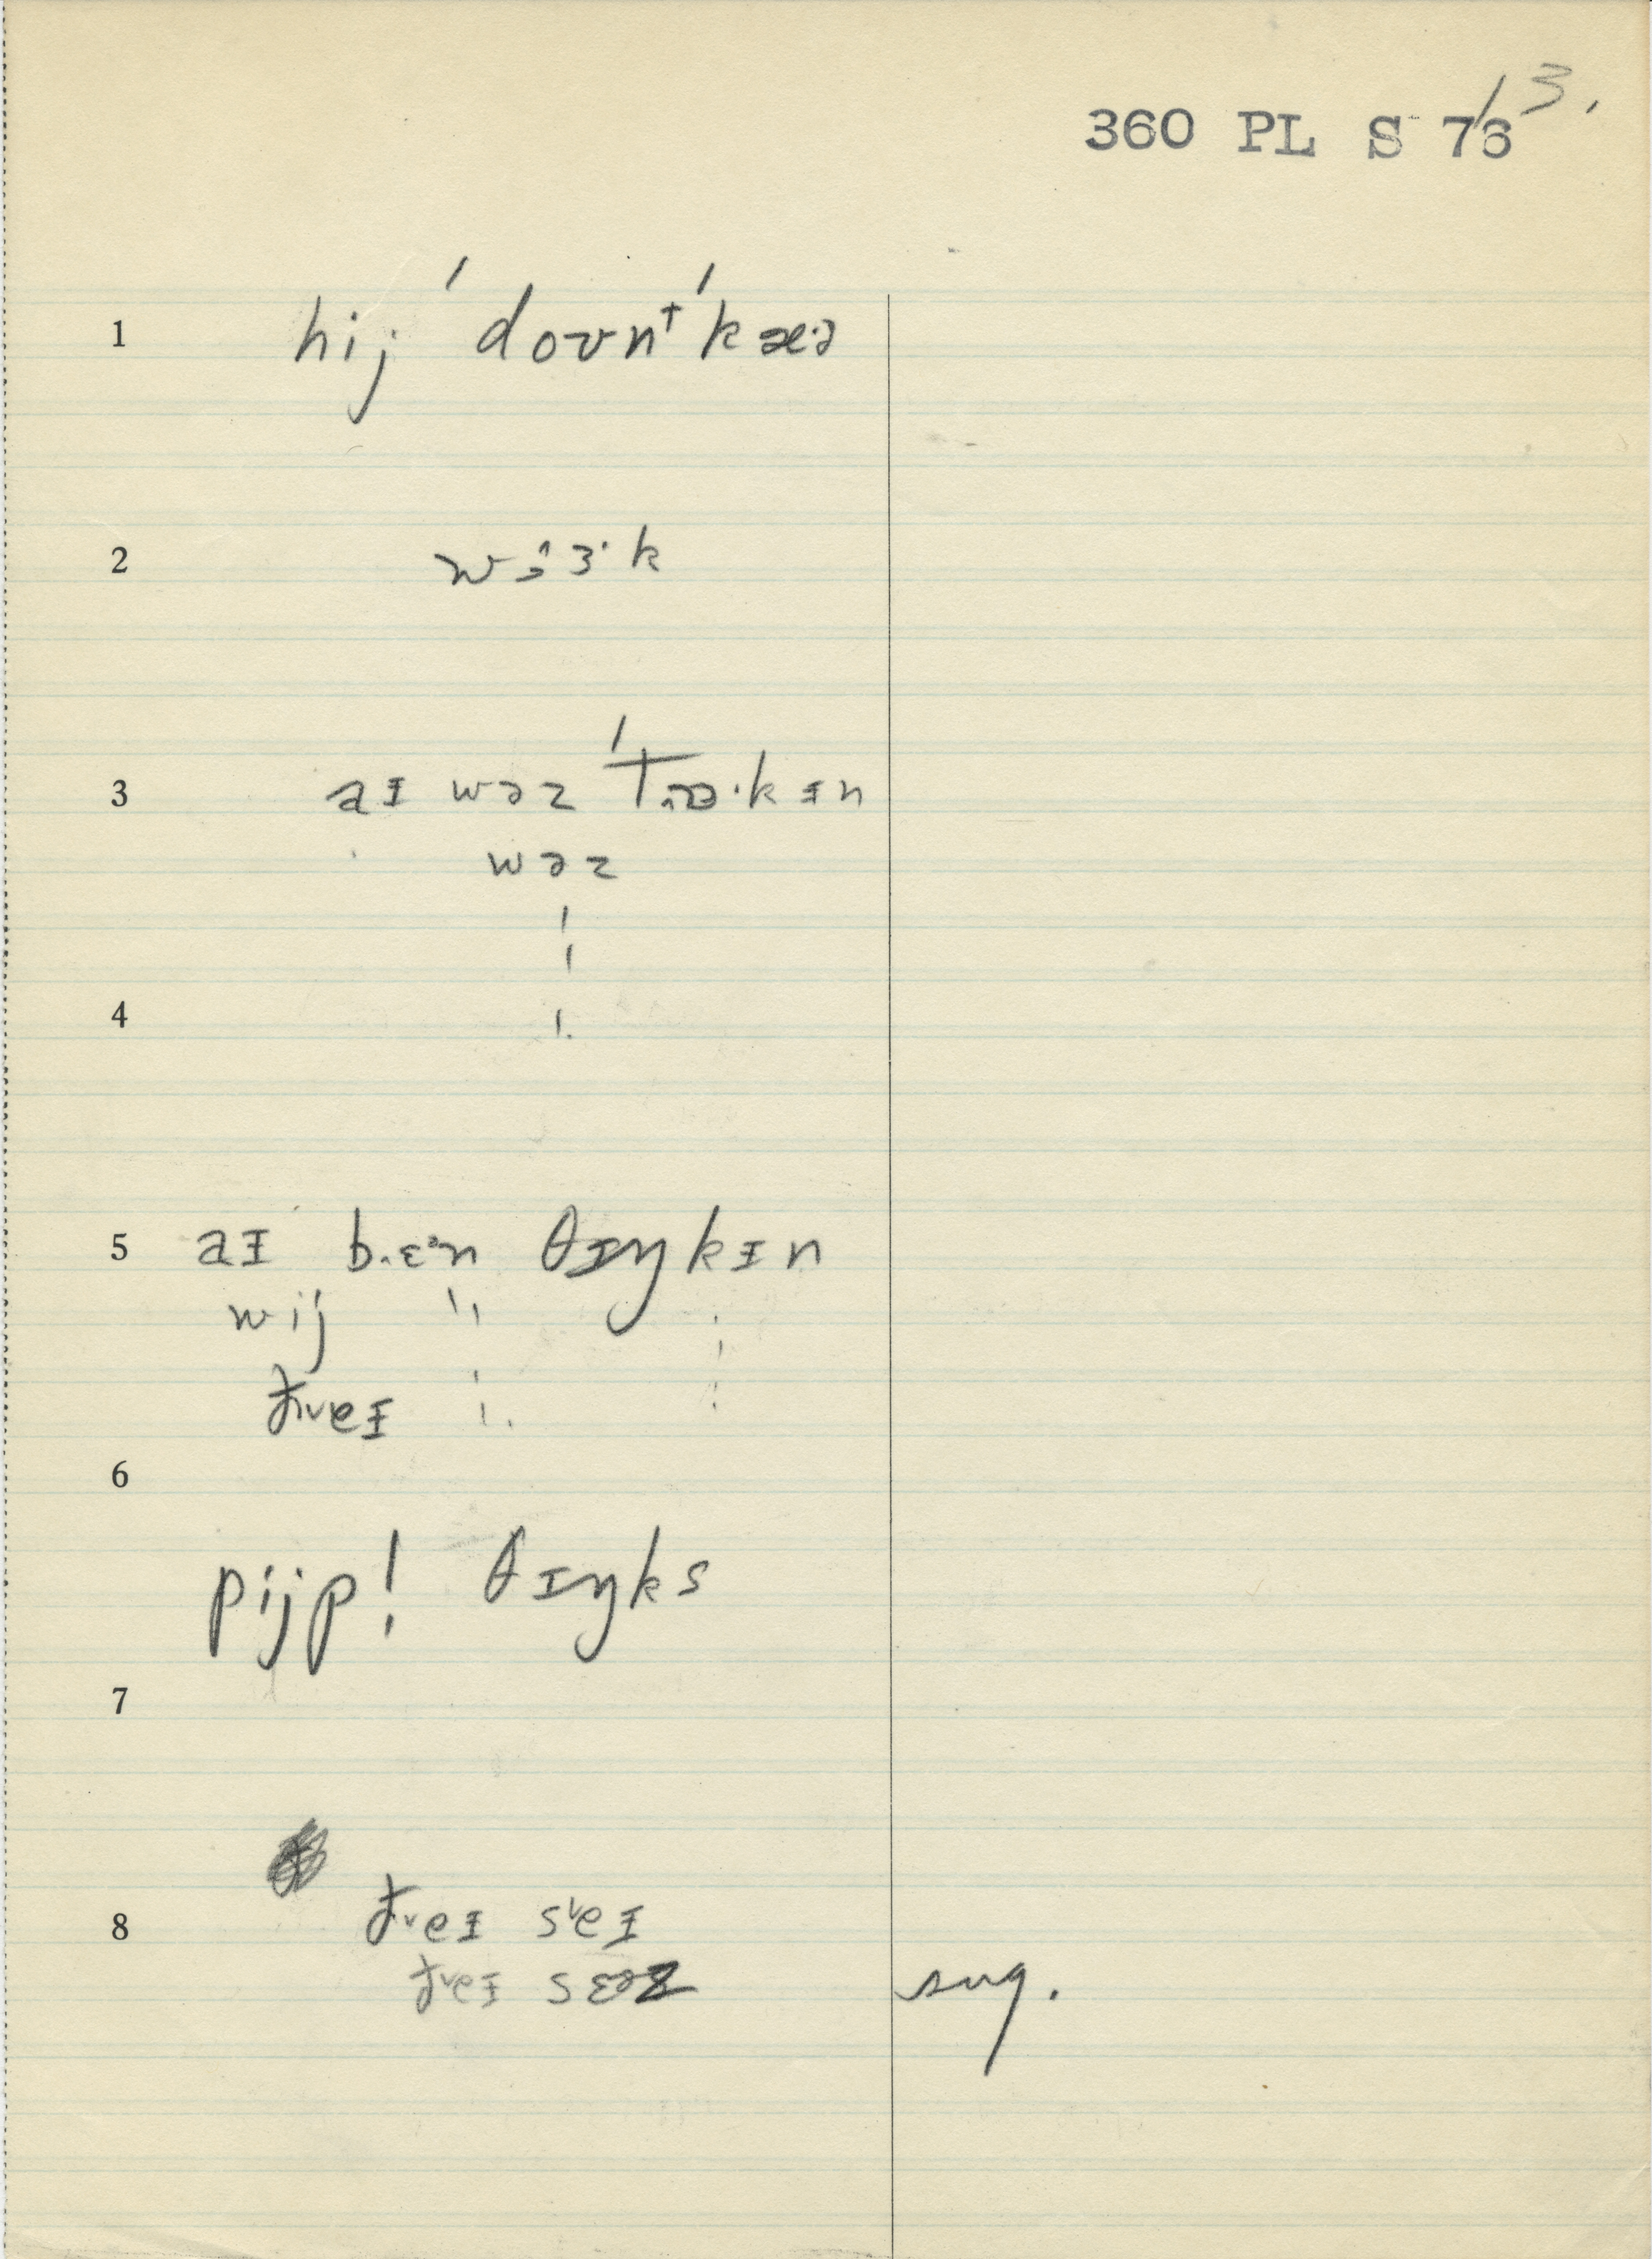 360 PL S 76 / 3.
1 hij ˈdoʊnᵗˈkæ·ə
2 wɜ·k
3 aɪ wəz ˈtɒ·kɪn
wəz
4
5 aɪ b.ɛᵊn θɪŋkɪn
wij
ðˇeɪ
6
pijp! θɪŋks
7
8 ðˇeɪ sˇeɪ
ðˇeɪ sɛəz sug.